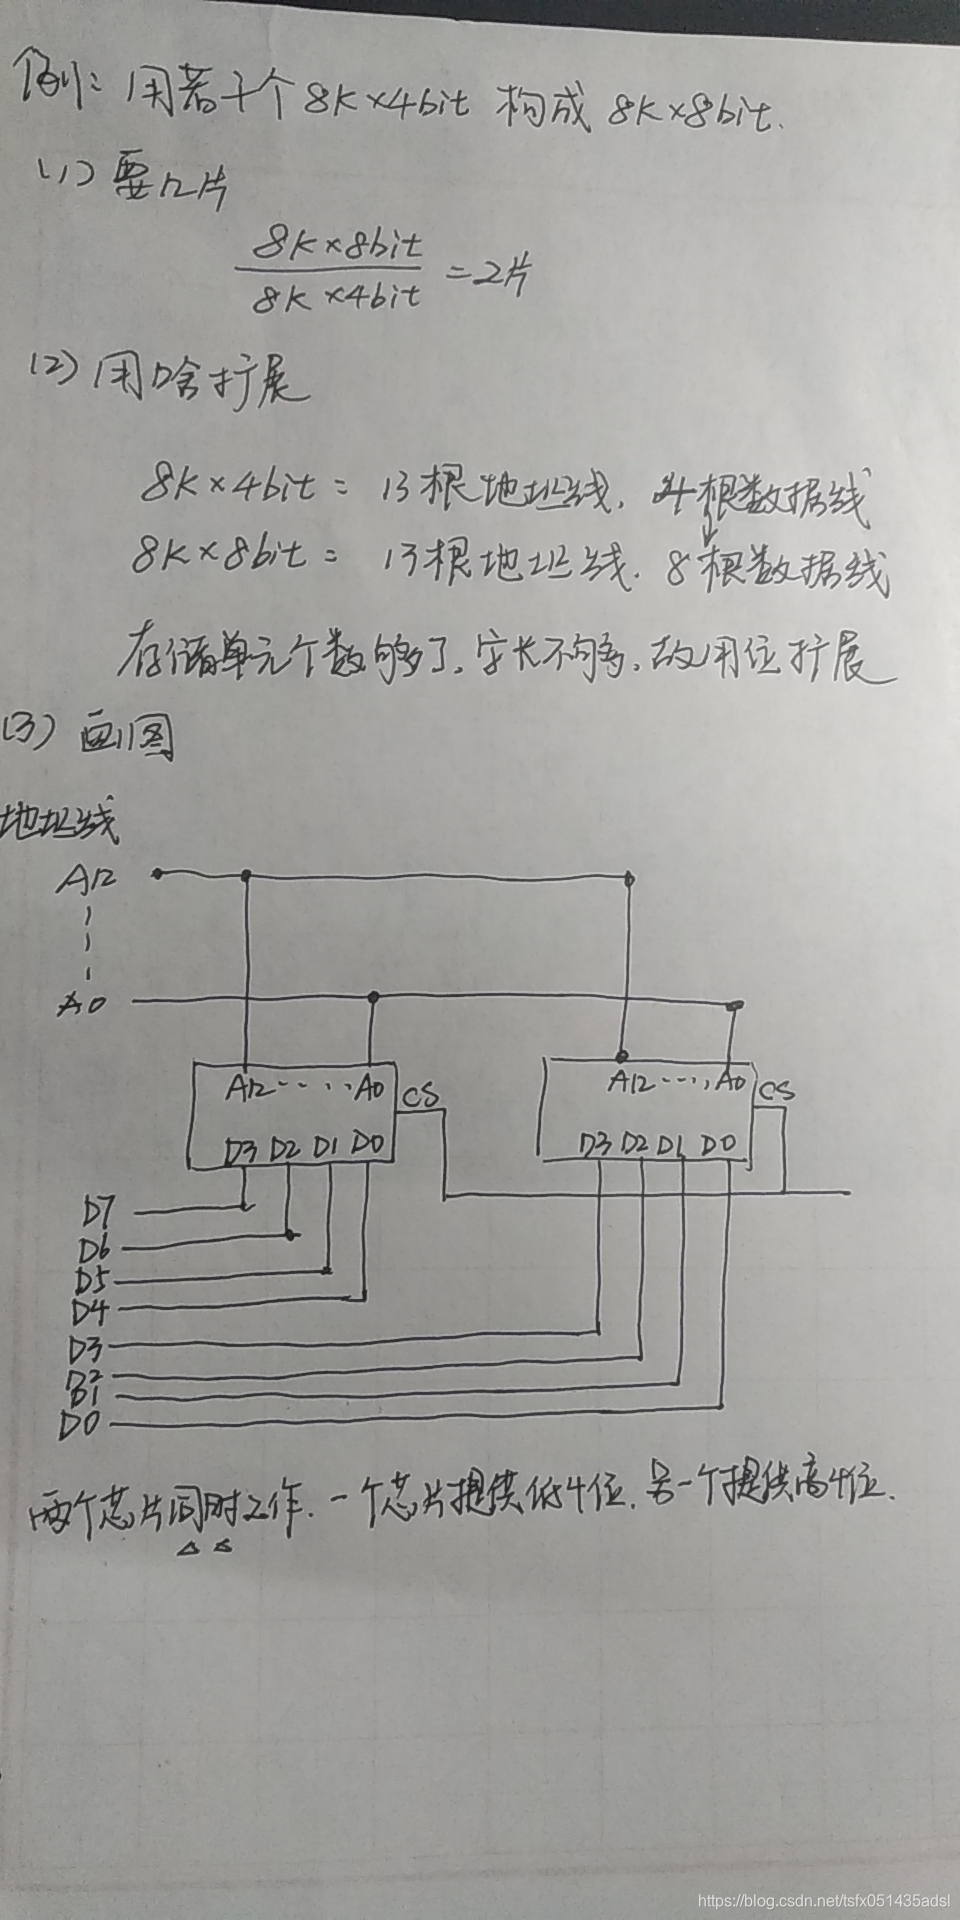 例: 用若干个8K×4bit 构成 8K×8bit.
(1) 要几片
8K×8bit
8K×4bit
=2片
(2) 用啥扩展
8K×4bit = 13根地址线, 4根数据线
8K×8bit = 13根地址线. 8根数据线
存储单元个数够了, 字长不够, 故用位扩展
(3) 画图
地址线
A12
A0
A12 ····· A0 CS
D3 D2 D1 D0
A12 ····, A0 CS
D3 D2 D1 D0
D7
D6
D5
D4
D3
D2
D1
D0
两个芯片同时工作. 一个芯片提供低4位, 另一个提供高4位.
https://blog.csdn.net/tsfx051435adsl